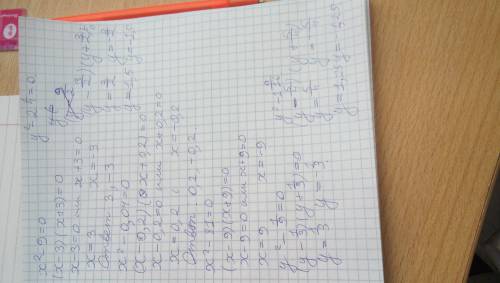 x²-9=0
(x-3)(x+3)=0
x-3=0 или x+3=0
x=3 x=-3
Ответ 3, -3
x²-0,04=0
(x-0,2)(x+0,2)=0
x-0,2=0 или x+0,2=0
x=0,2, x=-0,2
Ответ 0,2, -0,2
x²-81=0
(x-9)(x+9)=0
x-9=0 или x+9=0
x=9 x=-9
y²-1/9=0
(y-1/3)(y+1/3)=0
y=1/3 y=-1/3
y²-2 1/4=0
(y-3/2)(y+3/2)
y=3/2 y=-3/2
y=1,5 y=-1,5